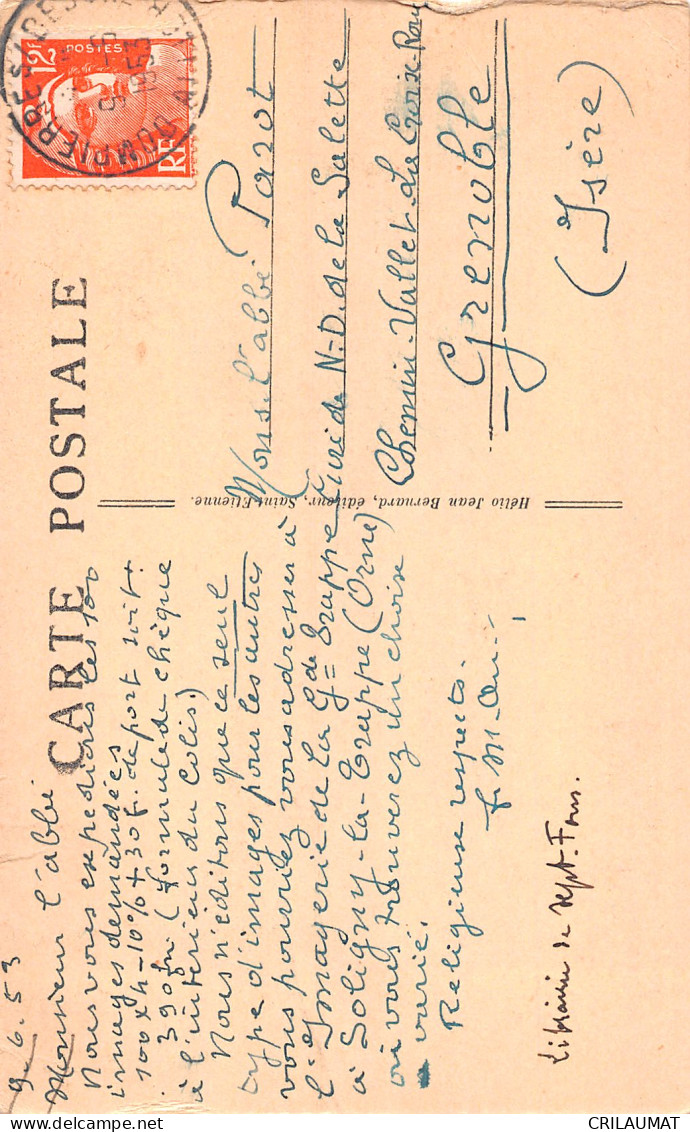 CARTE POSTALE
9.6.53
Monsieur l'abbé
Nous vous expedions les 100
images demandées
100 x 4 - 10% + 30 f. de port soit:
390 fr (formule de chèque
à l'interieur du colis.)
Nous n'editons que ce seul
type d'images pour les autres
vous pourriez vous adresser à
l'Imagerie de la Gde Trappe
à Soligny-la-Trappe (Orne)
où vous trouverez un choix
varié.
Religieux respects.
f. M-
Librairie de Sept-Fons.
Hélio Jean Bernard, éditeur, Saint-Etienne.
POSTES
12F
RF
Mons. l'abbé Parot
N.-D. de la Salette
Chemin-Vallet. La Croix-Rouge
Grenoble
(Isère)
CRILAUMAT